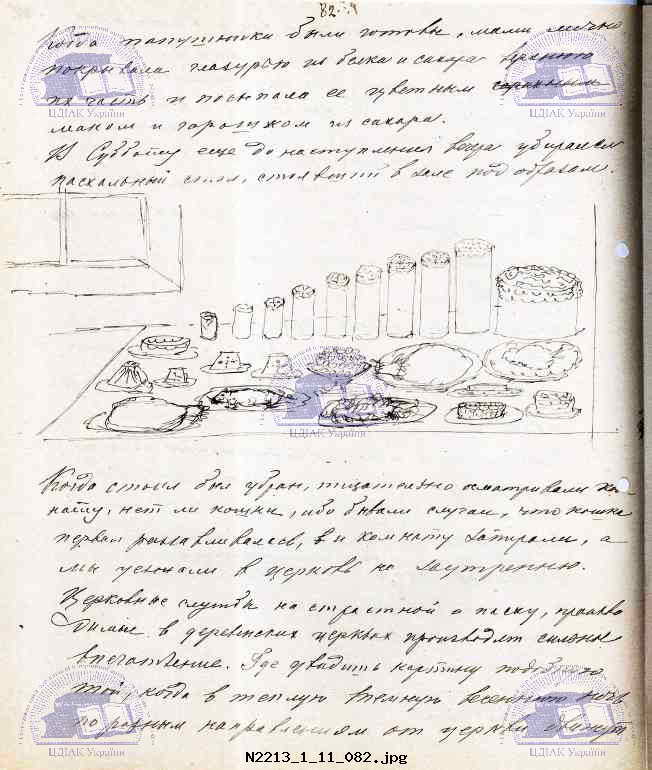 82.
Когда папушники были готовы, мама
покрывала глазурью из белка и сахара верхнюю
их часть и посыпала ее цветным
маком и горошком из сахара.
В Субботу еще до наступления вечера убирался
пасхальный стол, стоявший в зале под образами.
ЦДІАК України
ЦДІАК України
ЦДІАК України
Когда стол был убран, тщательно осматривали ком-
нату, нет ли кошки, ибо бывали случаи, что кошка
первая разгавливалась, и комнату запирали, а
мы уезжали в церковь на заутреню.
Церковные службы на страстной и пасху, произво
димые в деревенских церквах производят сильное
впечатление. Где увидишь картину подобную
той, когда в теплую темную весеннюю ночь
по разным направлениям от церкви движутся
ЦДІАК України
ЦДІАК України
N2213_1_11_082.jpg